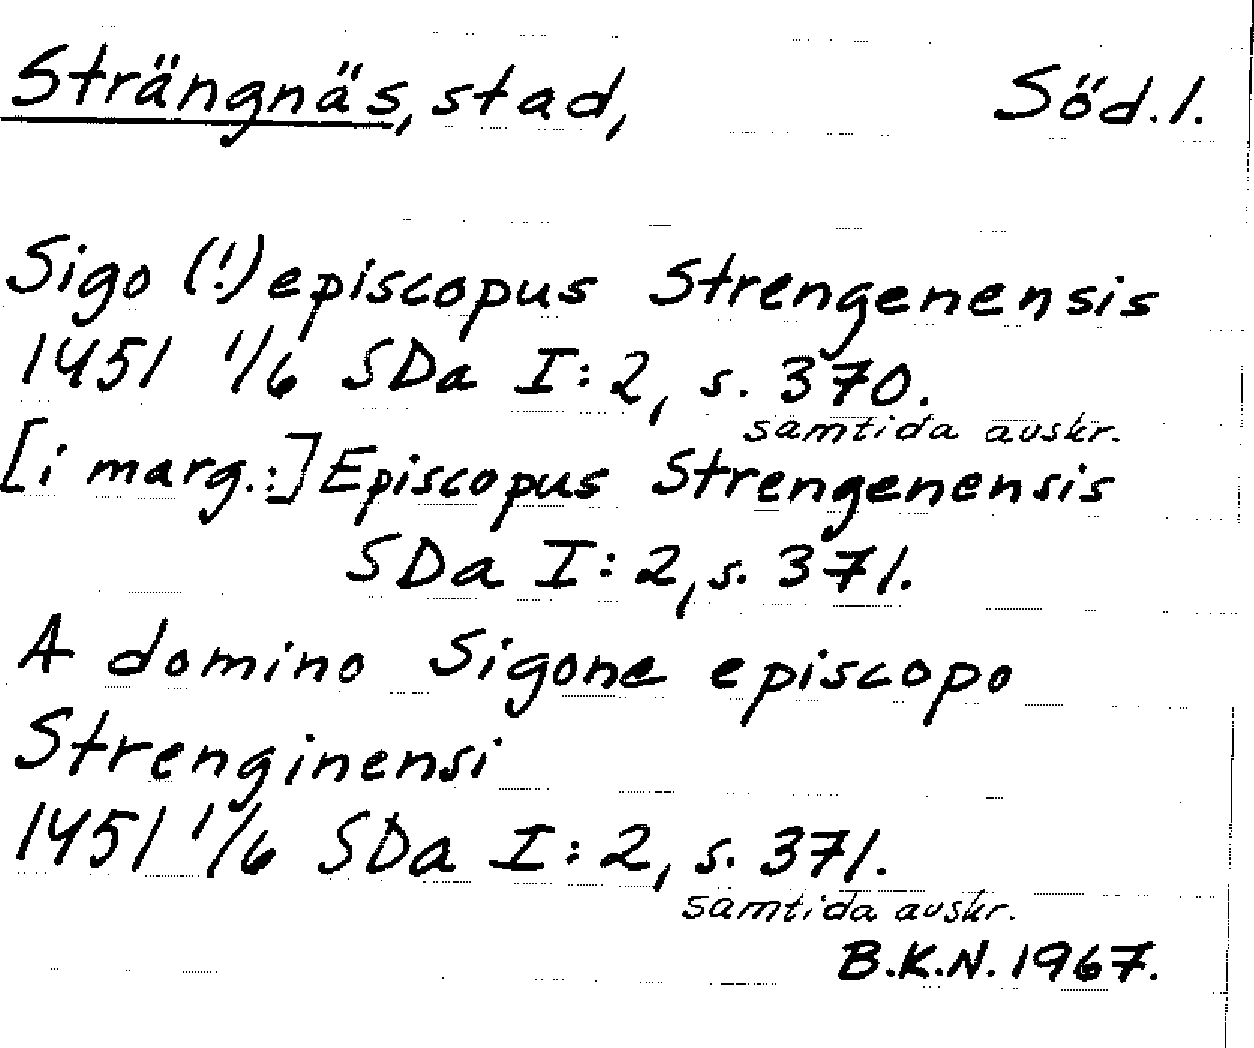 Strängnäs, stad, Söd.l.
Sigo (!) episcopus Strengenensis
1451 1/6 SDa I:2, s. 370.
samtida avskr.
[i marg.:] Episcopus Strengenensis
SDa I:2, s. 371.
A domino Sigone episcopo
Strenginensi
1451 1/6 SDa I:2, s. 371.
samtida avskr.
B.K.N. 1967.